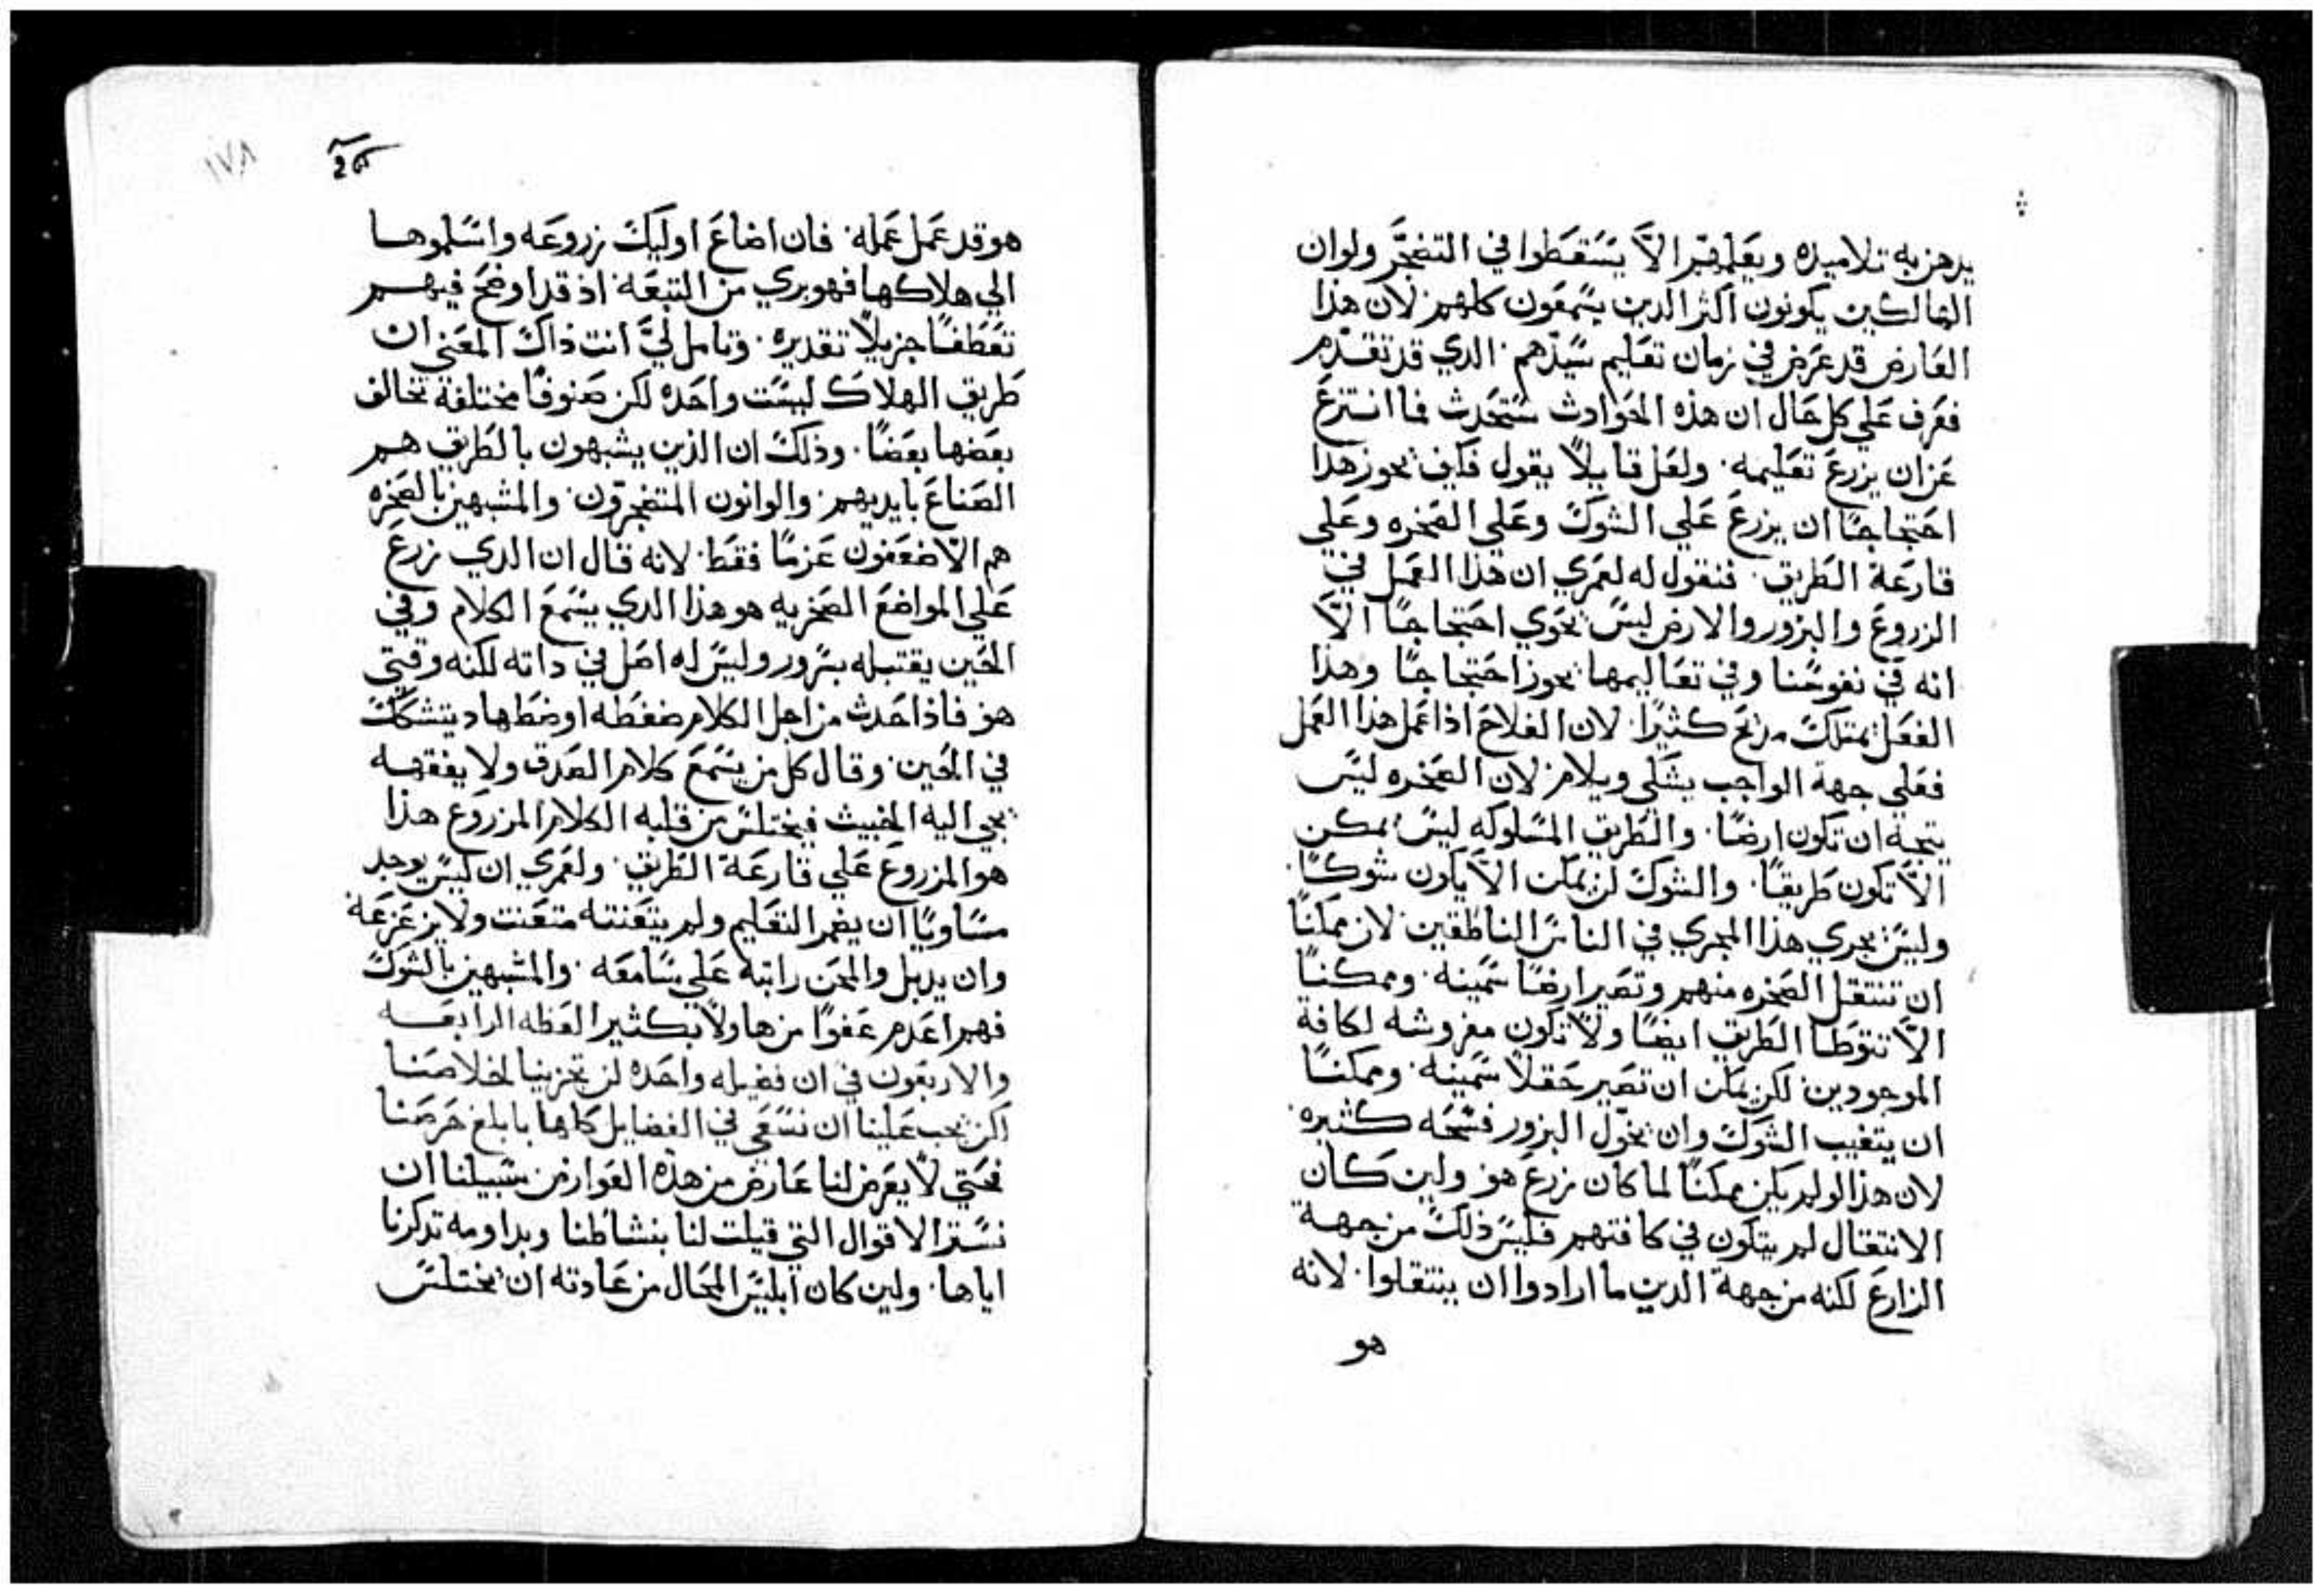 يدهن به تلاميذه ويعلمهم الاَّ يسَتقطوا في التضجَّر ولوان
الهالكين يكونون اكثر الدين يسَمعون كلهم لان هذا
العَارض قد عَرض في زمان تعَليم سَيدهم الدي قد تقدم
فعَرف عَلي كل حَال ان هذه الحَوادث سَتحَدث فما انتزعَ
عَن ان يزرعَ تعَليمه ولعَل قايلاً يقول فكيف يحوز هذا
احَتجاجاً ان يزرعَ عَلي الشوك وعَلي الصَخره وعَلي
قارعَة الطَريق فنقول له لعَمري ان هذا العَمل في
الزروعَ والبزور والارض ليسَ يحَوي احَتجاجاً الاَّ
انه في نفوسَنا وفي تعَاليمها يحوز احَتجاجاً وهذا
الفعَل يمتلك مدَيحَ كثيراً لان الفلاحَ اذا عَمل هذا العَمل
فعَلي جهة الواجب يشَلي ويلام لان الصَخره ليسَ
يتجه ان تكون ارضاً والطَريق المسَلوكه ليسَ يمكن
الاَّ تكون طَريقاً والشوك لن يمكن الاَّ يكون شوكاً
وليسَ يجري هذا المجري في الناسَ الناطَقين لان ممكناً
ان تنتقل الصَخره منهم وتصَير ارضاً سَمينه وممكناً
الاَّ تتوطَا الطَريق ايضاً ولا تكون مفروشه لكافة
الموجودين لكن يمكن ان تصَير حَقلاً سَمينه وممكناً
ان يتغيب الشوك وان يخوَّل البزور فسَحَه كثيره
لان هذا لو لم يكن ممكناً لما كان زرعَ هو ولين كان
الانتقال لم يتكون في كافتهم فليسَ ذلك من جهة
الزارعَ لكنه من جهة الدين ما ارادوا ان ينتقلوا لانه
هو
١٧٨
هو قد عَمل عَمله فان اضاعَ اوليك زروعَه واسَلموها
الي هلاكها فهو بري من التبعَة اذ قد اوضحَ فيهم
تعَطفاً جزيلاً تقديره وتامل ليَّ انت ذاك المعَني ان
طَريق الهلاك ليسَت واحَده لكن صَنوفاً مختلفة تخالف
بعَضها بعَضاً وذلك ان الذين يشبهون بالطَريق هم
الصَناعَ بايديهم والوانون المتضجرون والمشبهين بالصَخره
هم الاضعَفون عَزماً فقطَ لانه قال ان الدي زرعَ
عَلي المواضعَ الصَخريه هو هذا الدي يسَمعَ الكلام وفي
الحَين يقتبله بسَرور وليسَ له اصَل في داته لكنه وقتي
هو فاذا حَدث من اجل الكلام ضغطَه او ضطَهاد يتشكك
في الحَين وقال كل من يسَمعَ كلام الصَدق ولا يفقهه
يجي اليه الخبيث فيختلسَ من قلبه الكلام المزروعَ هذا
هو المزروعَ عَلي قارعَة الطَريق ولعَمري ان ليسَ يوجد
مسَاوياً ان يضمر التعَليم ولم يتعَنته متعَنت ولا يزعَزعَه
وان يدبل والمحَن راتبه عَلي سَامعَه والمشبهين بالشوك
فهم اعَدم عَفواً من هاولاَ بكثير العَظه الرابعَه
والاربعَون في ان فضيله واحَده لن تجزينا لخلاصَنا
لكن يجب عَلينا ان نسَعَي في الفضايل كلها بابلغ حَرصَنا
فحَتي لا يعَرض لنا عَارض من هذه العَوارض سَبيلنا ان
نسَتر الاقوال التي قيلت لنا بنشاطَنا وبداومه تدكرنا
اياها ولين كان ابليسَ المحَال من عَادته ان يختلسَ